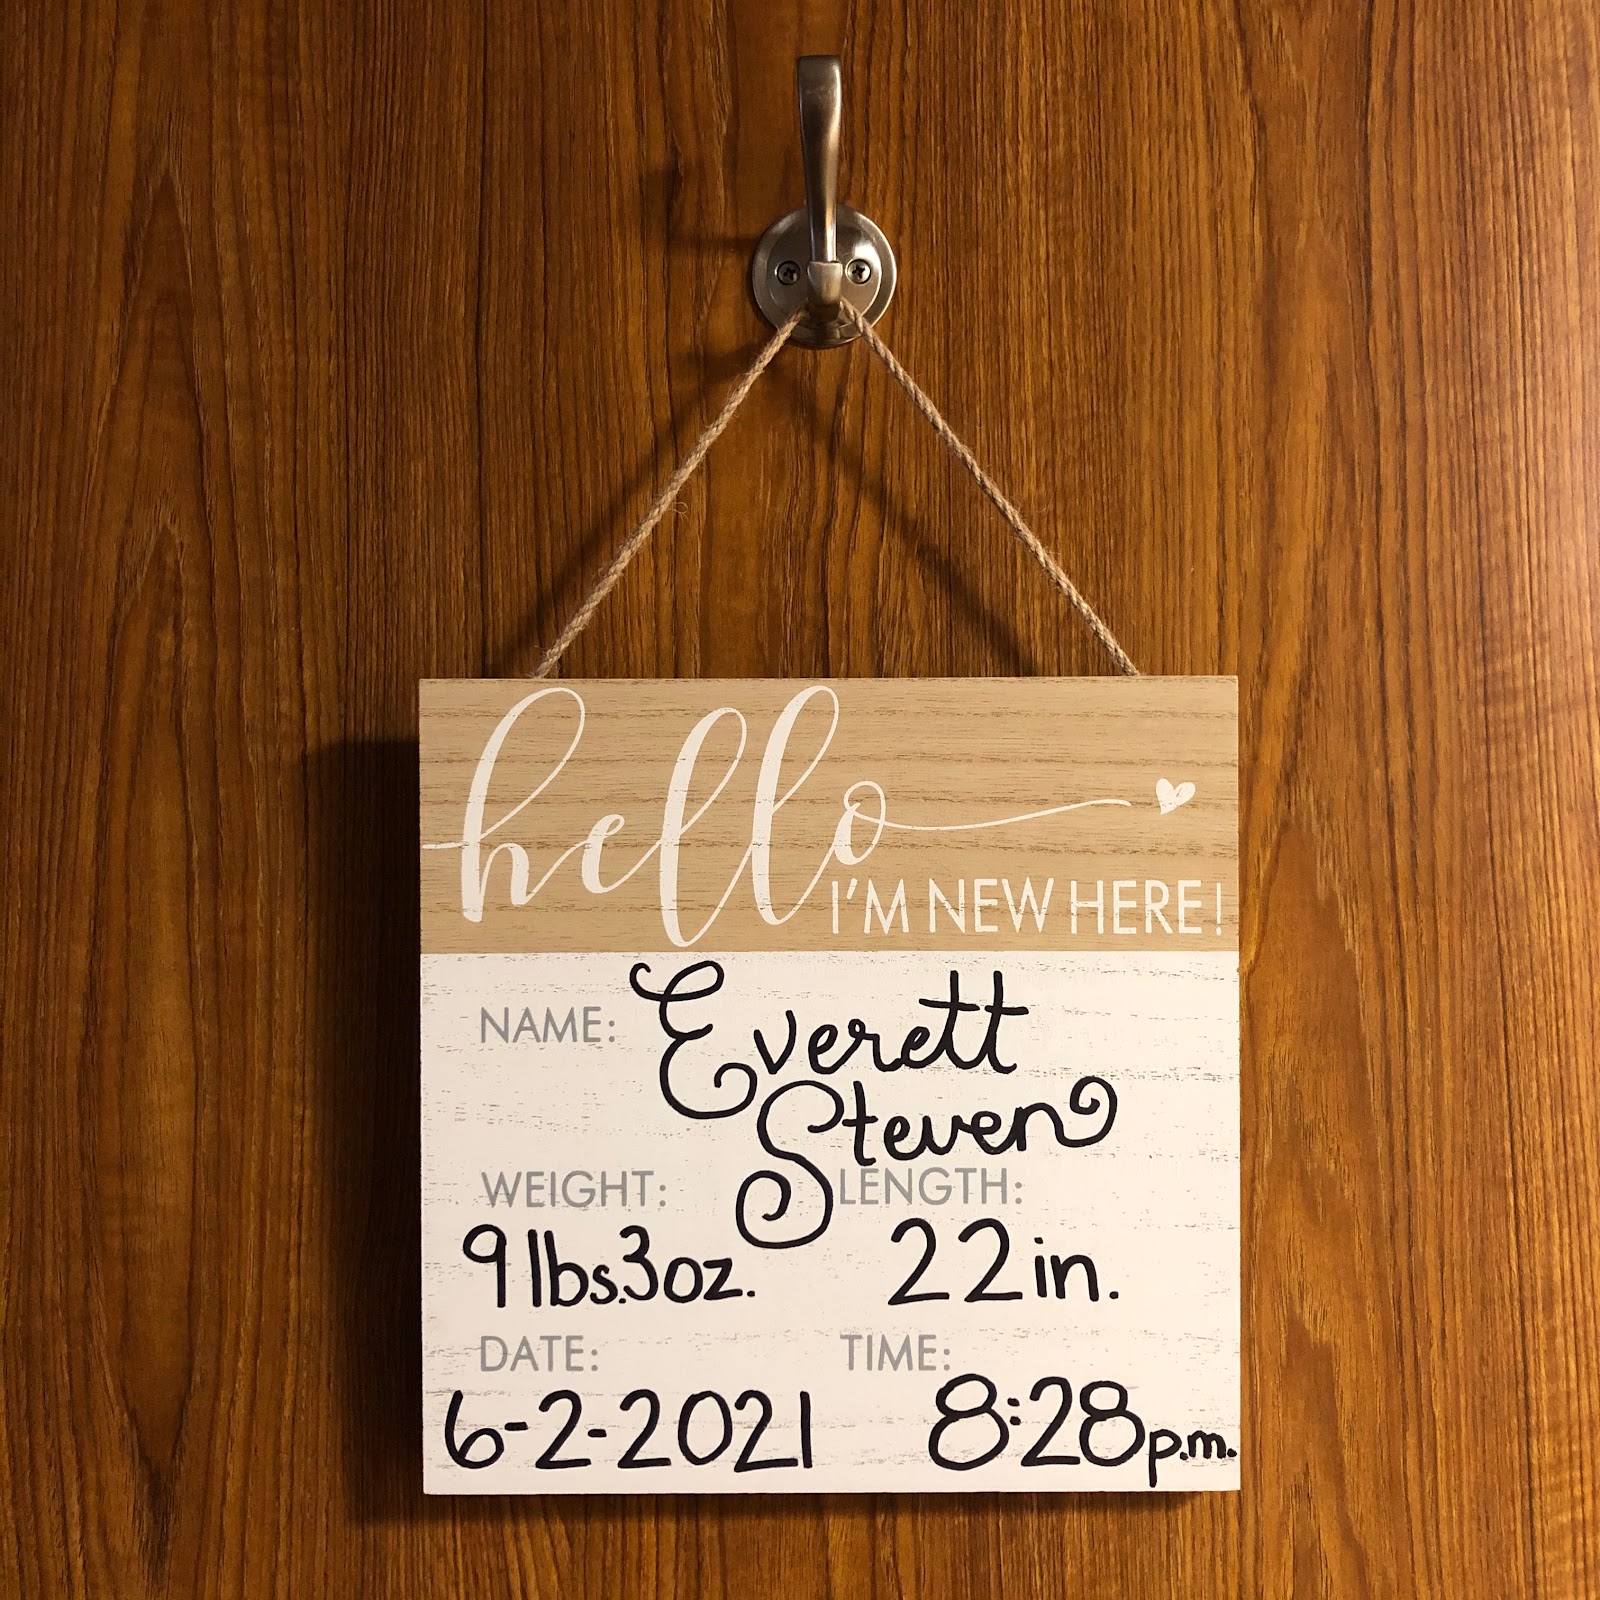 hello
I'M NEW HERE!
NAME: Everett
Steven
WEIGHT: LENGTH:
9 lbs. 3 oz. 22 in.
DATE: TIME:
6-2-2021 8:28 p.m.